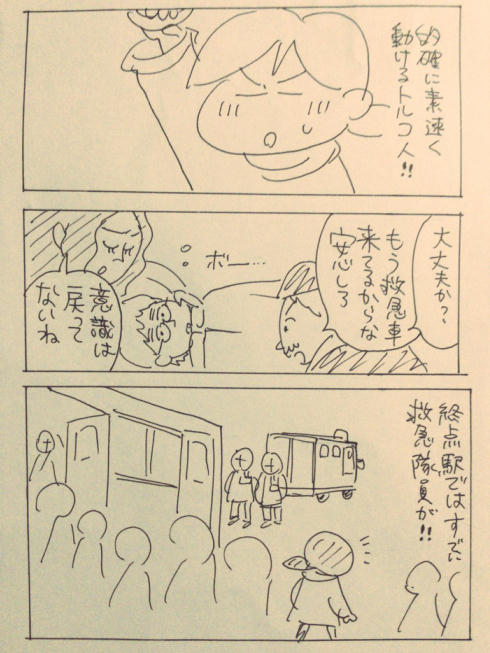 的確に素速く
動けるトルコ人!!
大丈夫か?
もう救急車
来てるからな
安心しろ
ボー……
意識は
戻って
ないね
終点駅ではすでに
救急隊員が!!